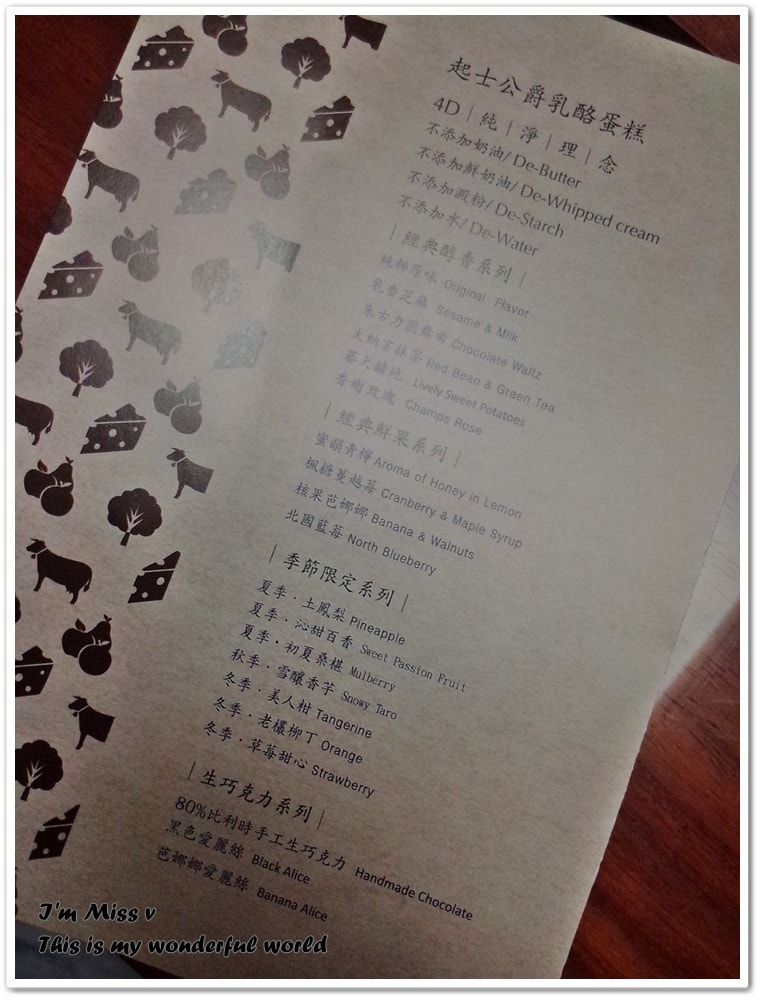 起士公爵乳酪蛋糕
4D｜純｜淨｜理｜念
不添加奶油/ De-Butter
不添加鮮奶油/ De-Whipped cream
不添加澱粉/ De-Starch
不添加水/ De-Water
｜經典醇香系列｜
純粹原味 Original Flavor
乳香芝麻 Sesame & Milk
朱古力圓舞曲 Chocolate Waltz
大納言抹茶 Red Bean & Green Tea
蕃天薯地 Lively Sweet Potatoes
香榭玫瑰 Champs Rose
｜經典鮮果系列｜
蜜韻青檸 Aroma of Honey in Lemon
楓糖蔓越莓 Cranberry & Maple Syrup
核果芭娜娜 Banana & Walnuts
北國藍莓 North Blueberry
｜季節限定系列｜
夏季・土鳳梨 Pineapple
夏季・沁甜百香 Sweet Passion Fruit
夏季・初夏桑椹 Mulberry
秋季・雪釀香芋 Snowy Taro
冬季・美人柑 Tangerine
冬季・老欉柳丁 Orange
冬季・草莓甜心 Strawberry
｜生巧克力系列｜
80%比利時手工生巧克力 Handmade Chocolate
黑色愛麗絲 Black Alice
芭娜娜愛麗絲 Banana Alice
I'm Miss v
This is my wonderful world